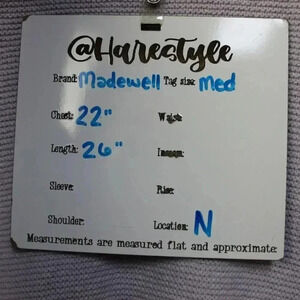 @Harestyle
Brand: Madewell Tag size: med
Chest: 22" Waist:
Length: 26" Inseam:
Sleeve: Rise:
Shoulder: Location: N
Measurements are measured flat and approximate